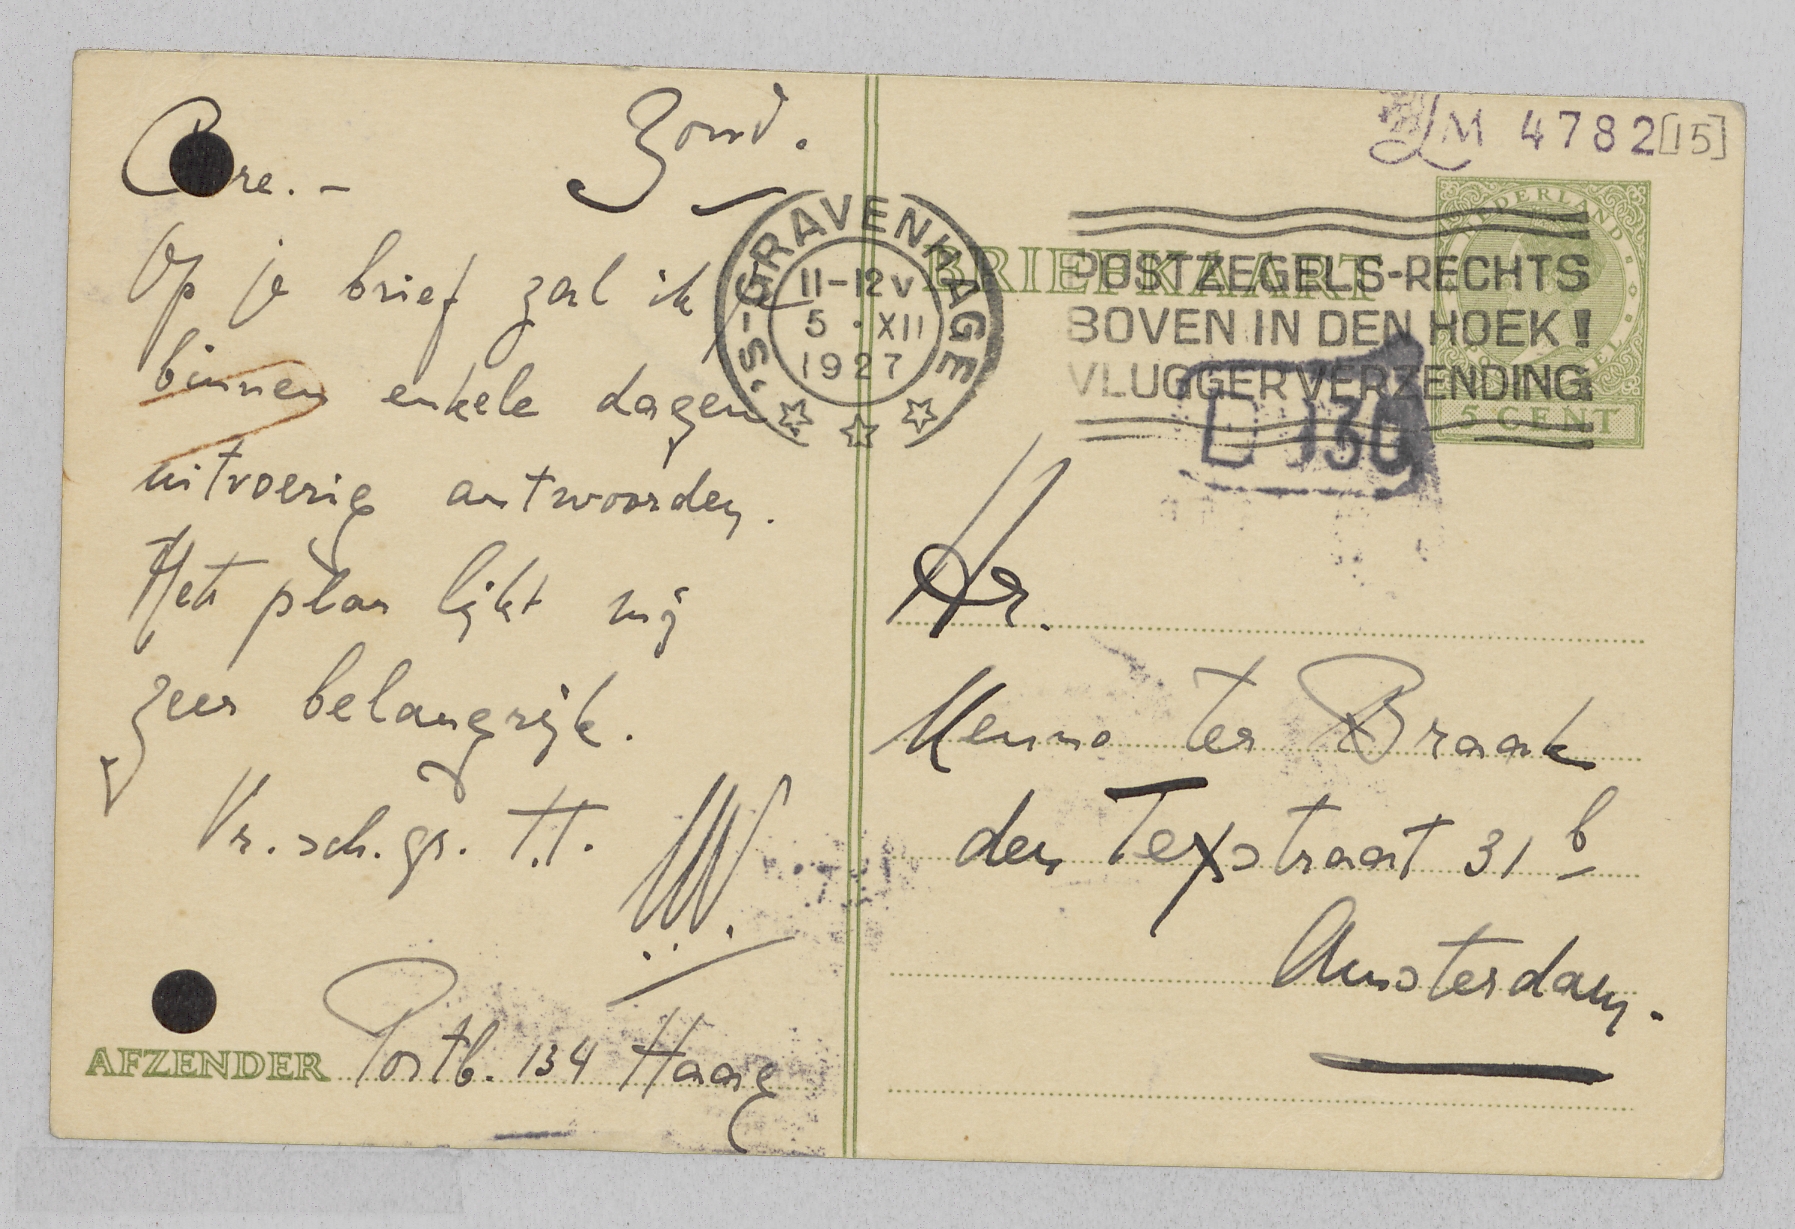 Zond.
Op je brief zal ik
binnen enkele dagen
uitvoerig antwoorden.
Het plan lijkt mij
zeer belangrijk.
Vr. sch. gr. t.t.
AFZENDER Postb. 134 Haag
'S-GRAVENHAGE
11-12V
5 · XII
1927
LM 4782[15]
NEDERLAND
5 CENT
BRIEFKAART
POSTZEGELS-RECHTS
BOVEN IN DEN HOEK!
VLUGGER VERZENDING.
D 130
Hr.
Menno ter Braak
den Texstraat 31 b
Amsterdam.